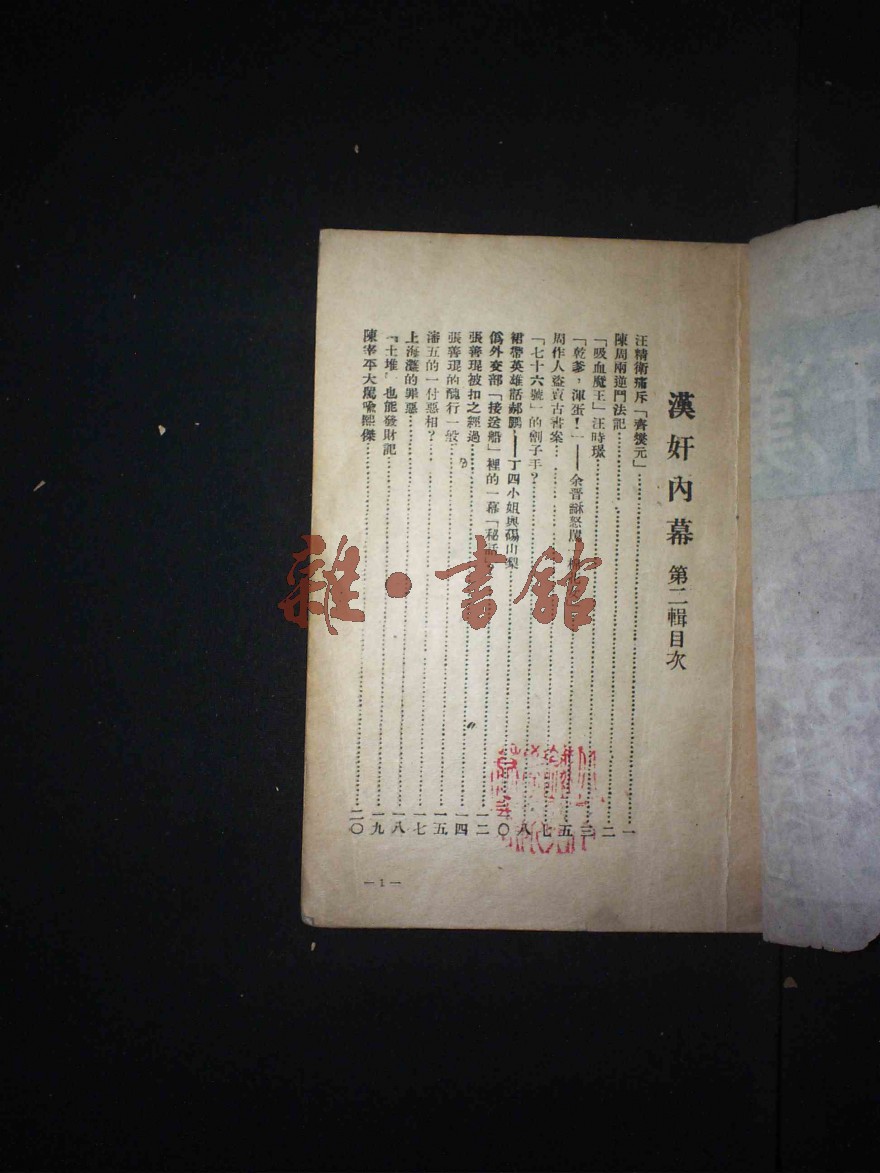 漢奸內幕 第二輯目次
汪精衛痛斥「齊燮元」……一
陳周兩逆鬥法記……二
「吸血魔王」汪時璟……三
「乾爹，渾蛋！」——余晋龢怒罵……五
周作人盜賣古書案……七
「七十六號」的劊子手？……八
裙帶英雄話郝鵬，——丁四小姐與碭山梨……一〇
僞外交部「接送船」裡的一幕「秘話」……一二
張善琨被扣之經過……一四
張善琨的醜行一般……一五
潘五的一付惡相？……一七
上海灘的罪惡……一八
「土堆」也能發財記……一九
陳宰平大罵喩熙傑……二〇
—1—
雜·書館